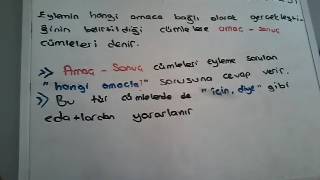 Eylemin hangi amaca bağlı olarak gerçekleşti-
ğinin belirtildiği cümlelere amaç-sonuç
cümleleri denir.
>> Amaç-Sonuç cümleleri eyleme sorulan
"hangi amaçla" sorusuna cevap verir.
>> Bu tür cümlelerde de "için, diye" gibi
edatlardan yararlanır